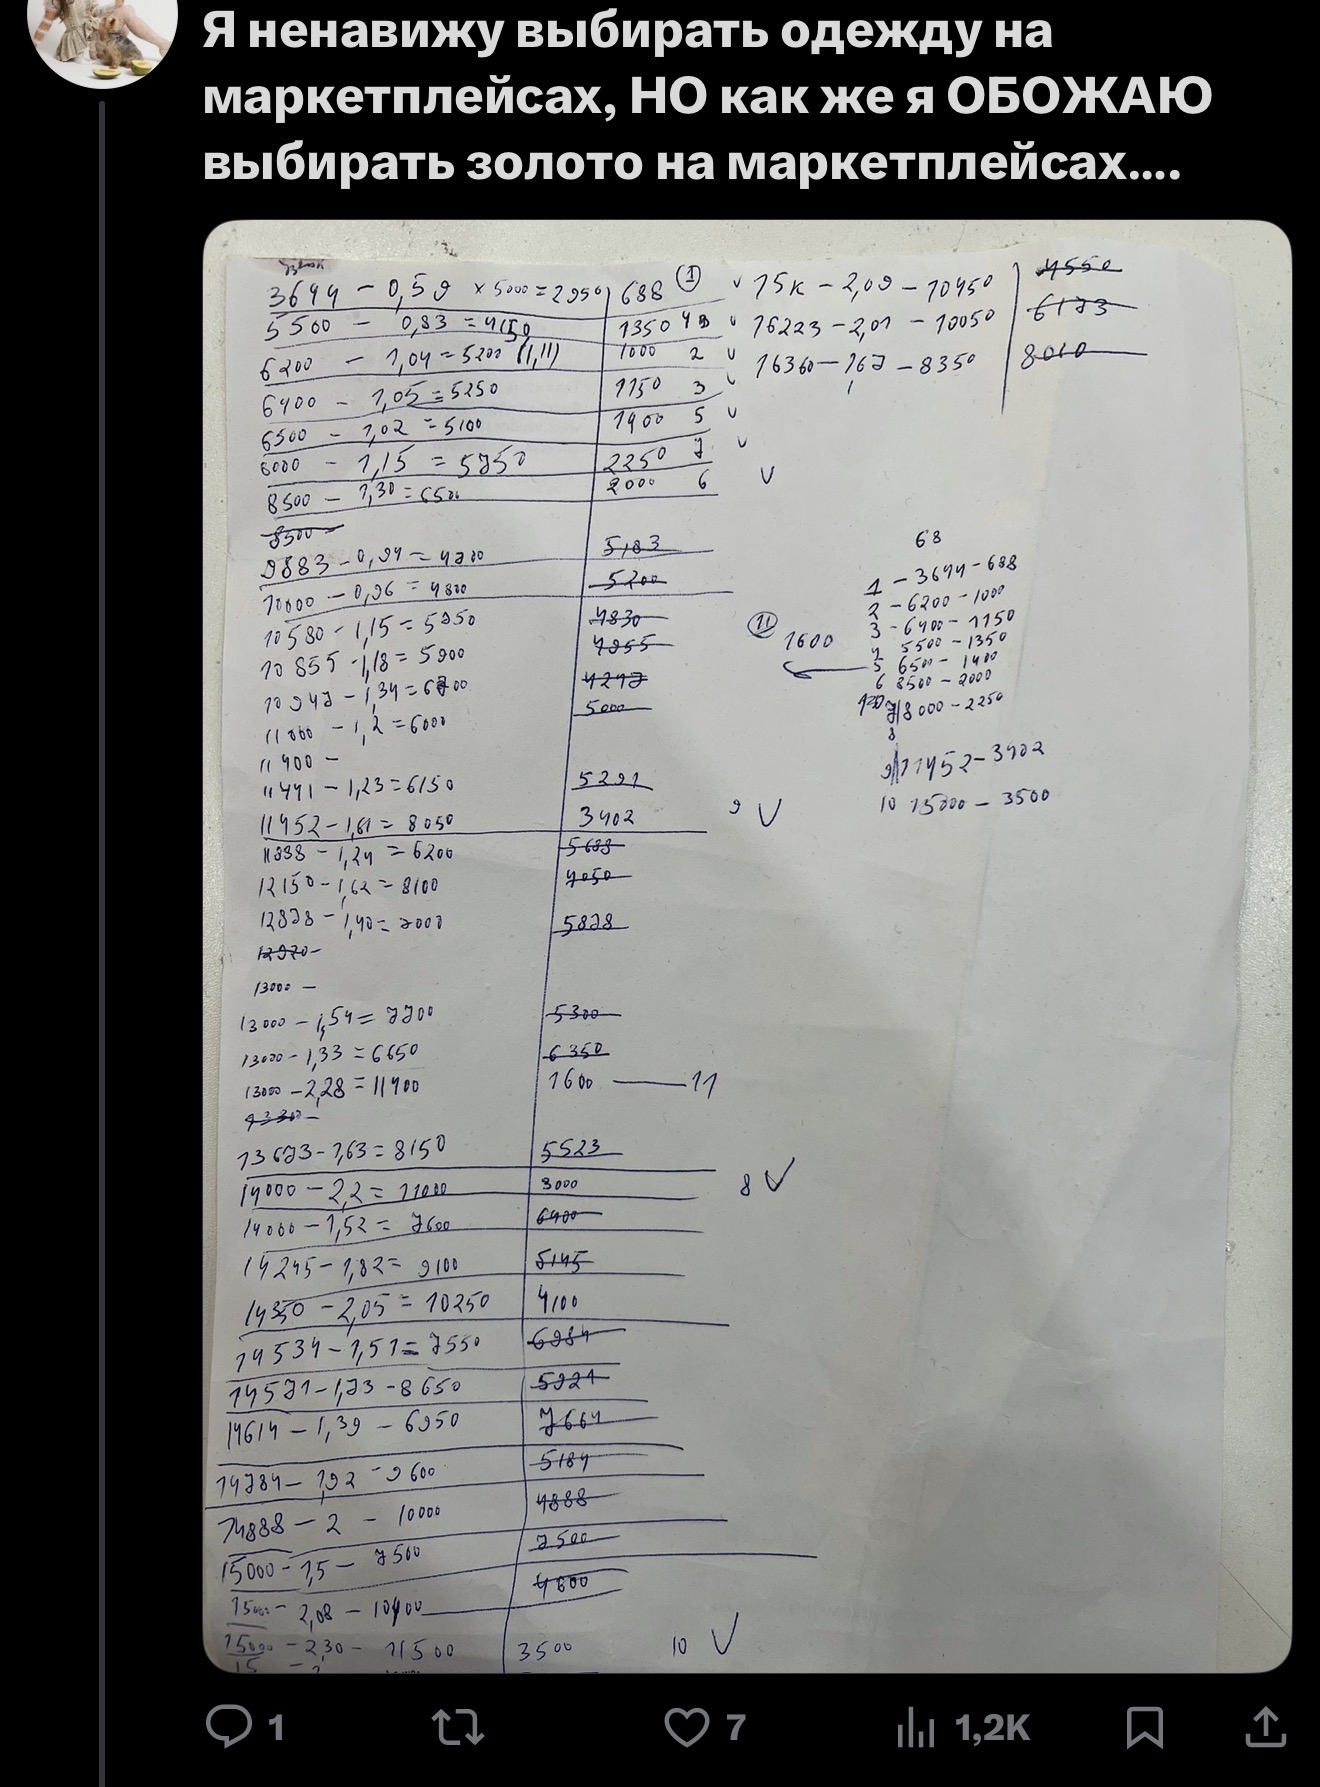 Я ненавижу выбирать одежду на
маркетплейсах, НО как же я ОБОЖАЮ
выбирать золото на маркетплейсах....
3644 - 0,59 x 5000 = 2950 688 1 v 15к - 2,09 - 10450 4550
5500 - 0,83 = 4150 1350 4 v 16223 - 2,01 - 10050 6173
6200 - 1,04 = 5200 (1,11) 1000 2 v 16360 - 1,67 - 8350 8010
6400 - 1,05 = 5250 1150 3 v
6500 - 1,02 = 5100 1400 5 v
8000 - 1,15 = 5750 2250 7 v
8500 - 1,30 = 6500 2000 6 v
8500 -
9883 - 0,94 = 4700 5183
10000 - 0,96 = 4800 5200
10580 - 1,15 = 5750 4830
10855 - 1,18 = 5900 4955
10947 - 1,34 = 6700 4247
11000 - 1,2 = 6000 5000
11400 -
11441 - 1,23 = 6150 5291
11452 - 1,61 = 8050 3402 9 v
11888 - 1,24 = 6200 5688
12150 - 1,62 = 8100 4050
12878 - 1,40 = 7000 5878
12970 -
13000 -
13000 - 1,54 = 7700 5300
13000 - 1,33 = 6650 6350
13000 - 2,28 = 11400 1600 — 11
13673 - 1,63 = 8150 5523
14000 - 2,2 = 11000 3000 8 v
14000 - 1,52 = 7600 6400
14245 - 1,82 = 9100 5145
14350 - 2,05 = 10250 4100
14534 - 1,51 = 7550 6984
14571 - 1,73 - 8650 5921
14614 - 1,39 - 6950 7664
14784 - 1,92 - 9600 5184
14888 - 2 - 10000 4888
15000 - 1,5 - 7500 7500
15000 - 2,08 - 10400 4600
15000 - 2,30 - 11500 3500 10 v
68
1 - 3644 - 688
2 - 6200 - 1000
3 - 6400 - 1150
4 5500 - 1350
5 6500 - 1400
6 8500 - 2000
7 8000 - 2250
8
9 11452 - 3402
10 15000 - 3500
11 1600
1 7 1,2K